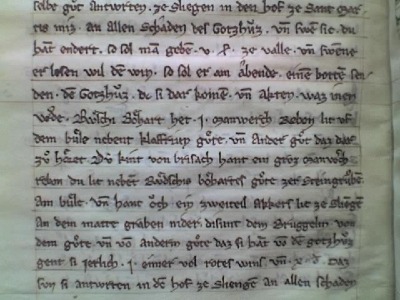 selbe gůt antwrten. ze Sliengen in den hof ze Sant mar
tis mis. an allen schaden des Gotzhůz. vn swen sie. du
hat endert. so sol man geben. v. ze valle. vn swene
er losen wil den win. so sol er am abende. einen botten sen
den. dē Gotzhůz. dc si dar komē. vn
Růdschi Bobart het. j. manwerch Rebon lit uf
dem bůle nebent gůte. vn ander gůt daz dar
zů höret Dü kint von brisach hant ein groz manwerch
rebon du lit nebent Růdschis bobartes gůte zer Steingrůben
am bůle. vn hant och ein zweiteil akkers lit ze Sliengē
an dem matte graben nider disunt dem Brüggelin von
dem gůte. vn vō anderm gůte daz si hāt vō dē gotzhůz
gent si jerlich. j. eimer vol rotes wins. vn. x. d. Daz
son si antwrten in dē hof ze Sliengē an allen schaden